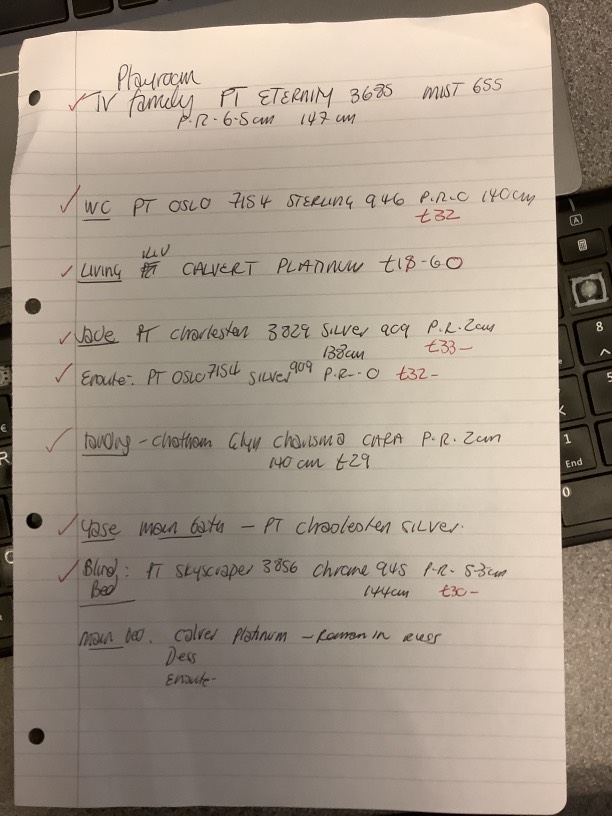 Playroom
TV family PT ETERNITY 3685 MIST 655
P.R-6.5cm 147cm
WC PT OSLO 7154 STERLING 946 P.R-O 140cm
£32
Living CALVERT PLATINUM £18-60
Jade PT Charlesten 3829 SILVER 909 P.R. 2cm
138cm £33-
Ensuite:- PT OSLO 7154 Silver 909 P.R-.O £32-
- Chatham Glyn Charisma CARA P.R. 2cm
140 cm £29
main bath - PT Chaolesten SILVER.
Blind: PT SKYSCRAPER 3856 Chrome 945 P-R- 5-3cm
Bed 144cm £30-
main bed. Calver Platinum - Roman in recess
Dess
Ensuite-
A
8
K
1
End
0
R
C